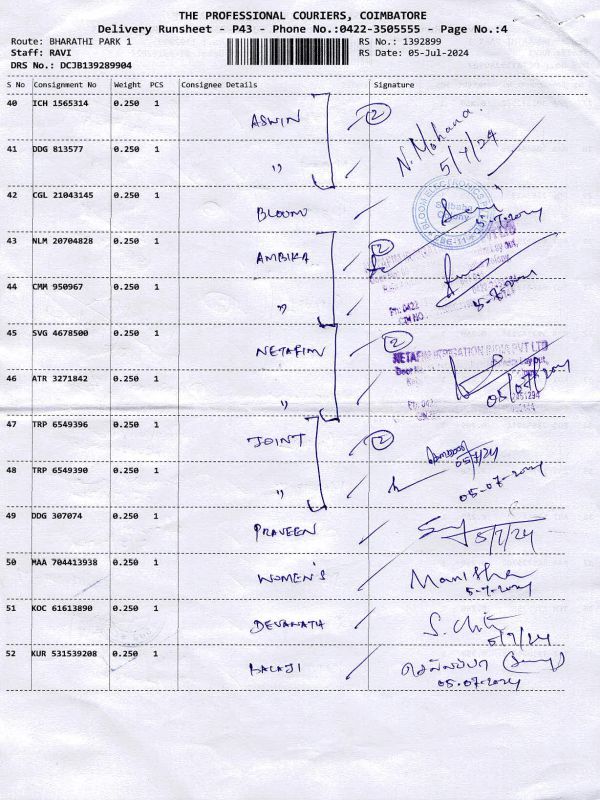 THE PROFESSIONAL COURIERS, COIMBATORE
Delivery Runsheet - P43 - Phone No.:0422-3505555 - Page No.:4
Route: BHARATHI PARK 1 RS No.: 1392899
Staff: RAVI RS Date: 05-Jul-2024
DRS No.: DCJB139289904
S No Consignment No Weight PCS Consignee Details Signature
40 ICH 1565314 0.250 1 ASWIN 2 N. Mohana
5/7/24
41 DDG 813577 0.250 1 "
42 CGL 21043145 0.250 1 BLOOM 5-7-2024
43 NLM 20704828 0.250 1 AMBIKA 2
44 CMM 950967 0.250 1 " 5-7-2024
45 SVG 4678500 0.250 1 NETAFIM 2
NETAFIM IRRIGATION INDIA PVT LTD
46 ATR 3271842 0.250 1 " 05/07/2024
47 TRP 6549396 0.250 1 JOINT 2 05/7/24
48 TRP 6549390 0.250 1 " 05-07-2024
49 DDG 307074 0.250 1 PRAVEEN 5/7/24
50 MAA 704413938 0.250 1 WOMEN'S Manisha
5-7-2024
51 KOC 61613890 0.250 1 DEVANATH 5/7/24
52 KUR 531539208 0.250 1 BALAJI
05.07.2024